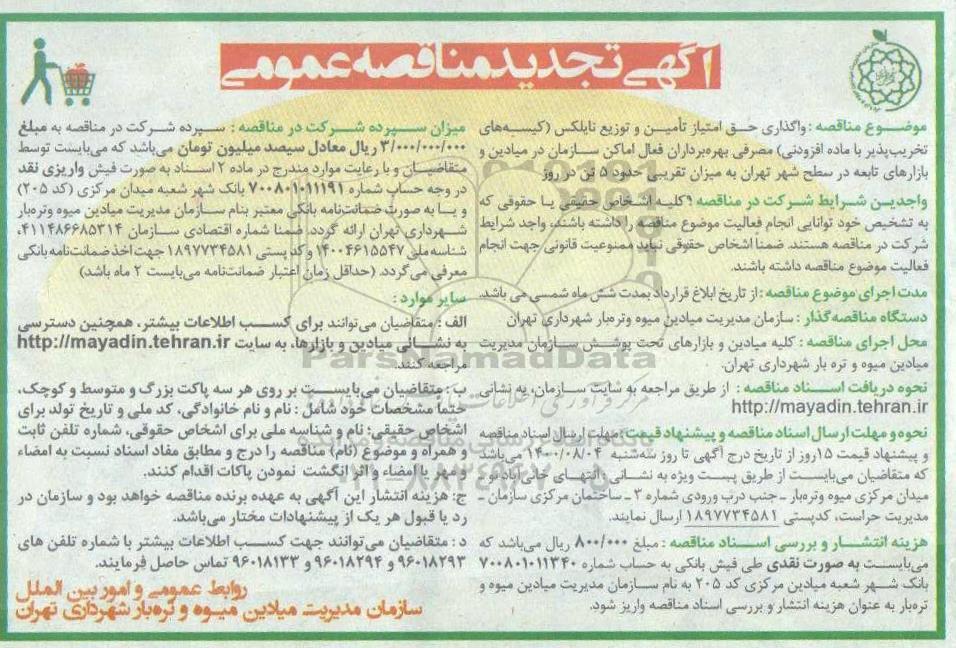 آگهی تجدید مناقصه عمومی
موضوع مناقصه : واگذاری حق امتیاز تأمین و توزیع نایلکس (کیسه‌های
تخریب‌پذیر با ماده افزودنی) مصرفی بهره‌برداران فعال اماکن سازمان در میادین و
بازارهای تابعه در سطح شهر تهران به میزان تقریبی حدود ۵ تن در روز
واجدین شرایط شرکت در مناقصه : کلیه اشخاص حقیقی یا حقوقی که
به تشخیص خود توانایی انجام فعالیت موضوع مناقصه را داشته باشند، واجد شرایط
شرکت در مناقصه هستند. ضمنا اشخاص حقوقی نباید ممنوعیت قانونی جهت انجام
فعالیت موضوع مناقصه داشته باشند.
مدت اجرای موضوع مناقصه : از تاریخ ابلاغ قرارداد بمدت شش ماه شمسی می باشد.
دستگاه مناقصه‌گذار : سازمان مدیریت میادین میوه وتره‌بار شهرداری تهران
محل اجرای مناقصه : کلیه میادین و بازارهای تحت پوشش سازمان مدیریت
میادین میوه و تره بار شهرداری تهران.
نحوه دریافت اسناد مناقصه : از طریق مراجعه به سایت سازمان، به نشانی
http://mayadin.tehran.ir
نحوه و مهلت ارسال اسناد مناقصه و پیشنهاد قیمت : مهلت ارسال اسناد مناقصه
و پیشنهاد قیمت ۱۵روز از تاریخ درج آگهی تا روز سه‌شنبه ۱۴۰۰/۰۸/۰۴ می‌باشد
که متقاضیان می‌بایست از طریق پست ویژه به نشانی انتهای خالی‌آباد نو،
میدان مرکزی میوه وتره‌بار ـ جنب درب ورودی شماره ۳ ـ ساختمان مرکزی سازمان ـ
مدیریت حراست، کدپستی ۱۸۹۷۷۳۴۵۸۱ ارسال نمایند.
هزینه انتشار و بررسی اسناد مناقصه : مبلغ ۸۰۰/۰۰۰ ریال می‌باشد که
می‌بایست به صورت نقدی طی فیش بانکی به حساب شماره ۷۰۰۸۰۱۰۱۱۳۴۰
بانک شهر شعبه میدان مرکزی کد ۲۰۵ به نام سازمان مدیریت میادین میوه و
تره‌بار به عنوان هزینه انتشار و بررسی اسناد مناقصه واریز شود.
میزان سپرده شرکت در مناقصه : سپرده شرکت در مناقصه به مبلغ
۳/۰۰۰/۰۰۰/۰۰۰ ریال معادل سیصد میلیون تومان می‌باشد که می‌بایست توسط
متقاضیان و با رعایت موارد مندرج در ماده ۲ اسناد به صورت فیش واریزی نقد
در وجه حساب شماره ۷۰۰۸۰۱۰۱۱۱۹۱ بانک شهر شعبه میدان مرکزی (کد ۲۰۵)
و یا به صورت ضمانت‌نامه بانکی معتبر بنام سازمان مدیریت میادین میوه وتره‌بار
شهرداری تهران ارائه گردد. ضمنا شماره اقتصادی سازمان ۴۱۱۴۸۶۶۸۵۳۱۴،
شناسه ملی ۱۴۰۰۰۴۶۱۵۵۴۷ و کد پستی ۱۸۹۷۷۳۴۵۸۱ جهت اخذ ضمانت‌نامه بانکی
معرفی می‌گردد. (حداقل زمان اعتبار ضمانت‌نامه می‌بایست ۲ ماه باشد)
سایر موارد :
الف : متقاضیان می‌توانند برای کسب اطلاعات بیشتر، همچنین دسترسی
به نشانی میادین و بازارها، به سایت http://mayadin.tehran.ir
مراجعه کنند.
ب: متقاضیان می‌بایست بر روی هر سه پاکت بزرگ و متوسط و کوچک،
حتماً مشخصات خود شامل : نام و نام خانوادگی، کد ملی و تاریخ تولد برای
اشخاص حقیقی؛ نام و شناسه ملی برای اشخاص حقوقی، شماره تلفن ثابت
و همراه و موضوع (نام) مناقصه را درج و مطابق مفاد اسناد نسبت به امضاء
و مهر یا امضاء و اثر انگشت نمودن پاکات اقدام کنند.
ج: هزینه انتشار این آگهی به عهده برنده مناقصه خواهد بود و سازمان در
رد یا قبول هر یک از پیشنهادات مختار می‌باشد.
د : متقاضیان می‌توانند جهت کسب اطلاعات بیشتر با شماره تلفن های
۹۶۰۱۸۲۹۳ و ۹۶۰۱۸۲۹۴ و ۹۶۰۱۸۱۳۳ تماس حاصل فرمایند.
روابط عمومی و امور بین الملل
سازمان مدیریت میادین میوه و تره‌بار شهرداری تهران
ParsNamadData